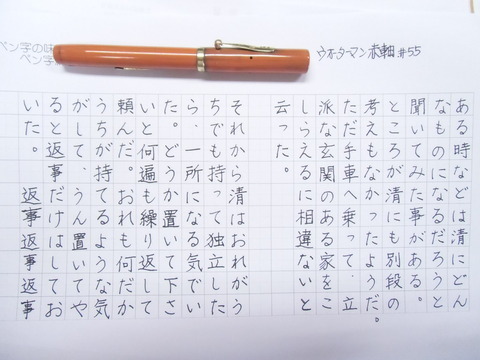 ペン字の味
ペン字
ウオーターマン 赤軸 #55
ある時などは清にどん
なものになるだろうと
聞いてみた事がある。
ところが清にも別段の
考えもなかったようだ。
ただ手車へ乗って、立
派な玄関のある家をこ
しらえるに相違ないと
云った。
それから清はおれがう
ちでも持って独立した
ら、一所になる気でい
た。どうか置いて下さ
いと何遍も繰り返して
頼んだ。おれも何だか
うちが持てるような気
がして、うん置いてや
ると返事だけはしてお
いた。 返事返事返事